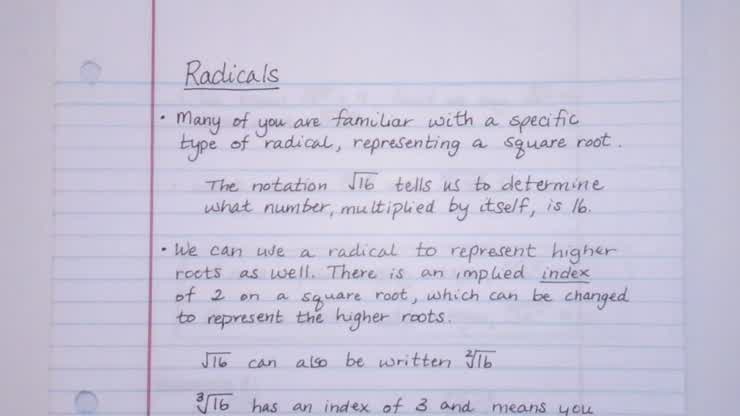 Radicals
• Many of you are familiar with a specific
type of radical, representing a square root.
The notation √16 tells us to determine
what number, multiplied by itself, is 16.
• We can use a radical to represent higher
roots as well. There is an implied index
of 2 on a square root, which can be changed
to represent the higher roots.
√16 can also be written ²√16
³√16 has an index of 3 and means you